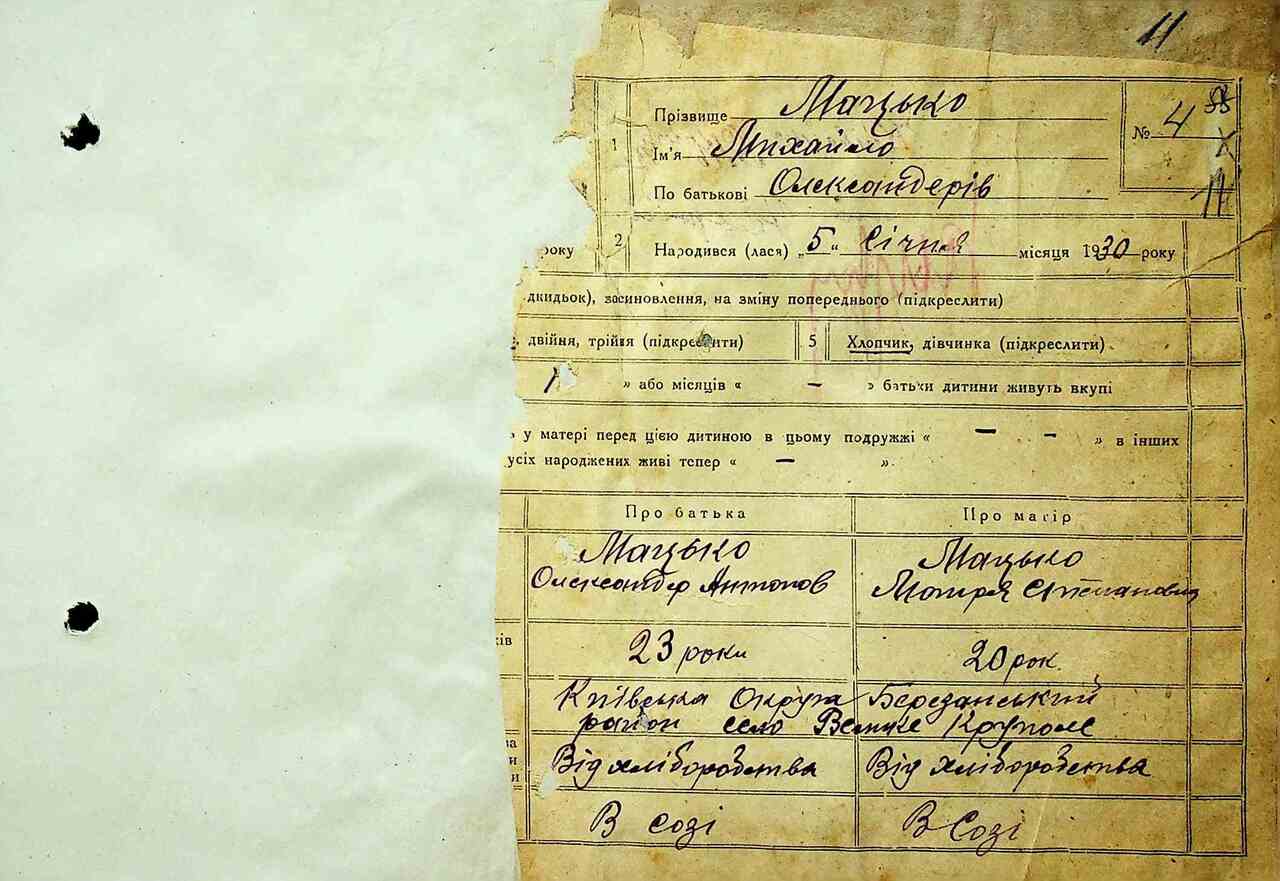 11
Прізвище Мацько
№ 4
1 Ім'я Михайло
По батькові Олександерів
11
року 2 Народився (лася) „5" Січня місяця 1930 року
дкидьок), засиновлення, на зміну попереднього (підкреслити)
, двійня, трійня (підкреслити) 5 Хлопчик, дівчинка (підкреслити)
1 » або місяців « — » батьки дитини живуть вкупі
у матері перед цією дитиною в цьому подружжі « — - » в інших
усіх народжених живі тепер « — ».
Про батька Про матір
Мацько Мацько
Олександер Антонов Мотря Степановна
ків 23 роки 20 рок.
Київська Округа Березанський
район село Велике Круполе
Від хліборобства Від хліборобства
В созі В Созі